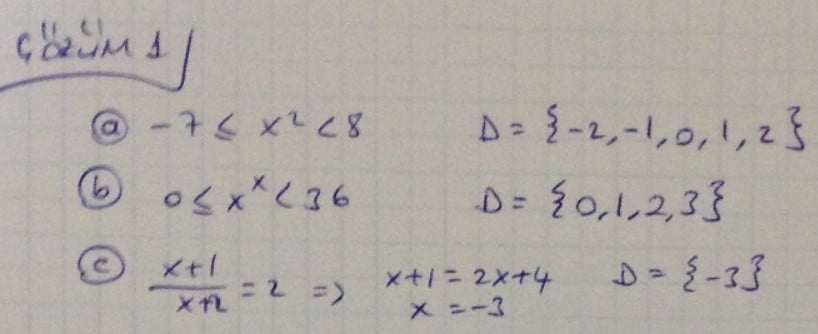 ÇÖZÜM 1
ⓐ -7 ≤ x² < 8 D = {-2, -1, 0, 1, 2}
ⓑ 0 ≤ xˣ < 36 D = {0, 1, 2, 3}
ⓒ (x+1)/(x+2) = 2 => x+1 = 2x+4 D = {-3}
x = -3